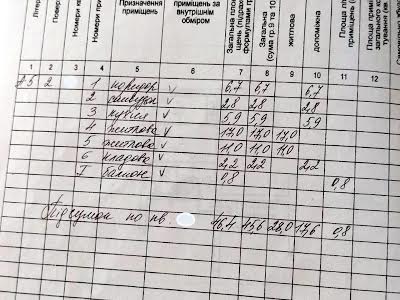 Літера
Поверх
Номери кв
Номери при
Призначення приміщень
приміщень за внутрішнім обміром
Загальна площ
(підрах
формулами г
Загальна
(сума гр.9 та 10
житлова
допоміжна
Площа
Площа примі
загального
1 2 3 4 5 6 7 8 9 10 11 12
5 2 1 коридор 6,7 6,7 6,7
2 санвузол 2,8 2,8 2,8
3 кухня 5,9 5,9 5,9
4 житлова 17,0 17,0 17,0
5 житлова 11,0 11,0 11,0
6 кладова 2,2 2,2 2,2
I балкон 0,8 0,8
Підсумок по кв. 46,4 45,6 28,0 17,6 0,8